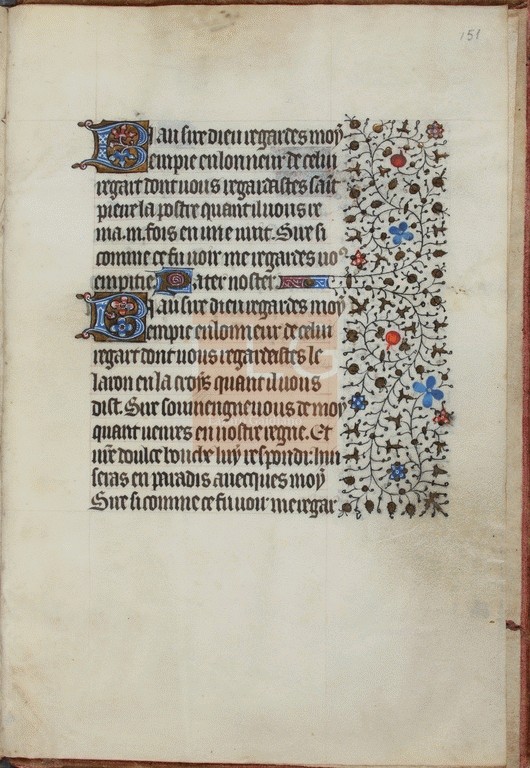 151
Biau sire dieu regardes moy
en pitie en lonneur de celui
regart dont vous regardastes saīt
pierre la postre quant il vous re
nia .iii. fois en une nuit. Sire si
comme ce fu voir me regardes vo⁹
en pitie Pater noster.
Biau sire dieu regardes moy
en pitie en lonneur de celui
regart dont vous regardastes le
laron en la croys quant il vous
dist. Sire souviengne vous de moy
quant venres en vostre regne. Et
vr̄e doulce bouche luy respondi: hui
seras en paradis avecques moy
Sire si comme ce fu voir me regar